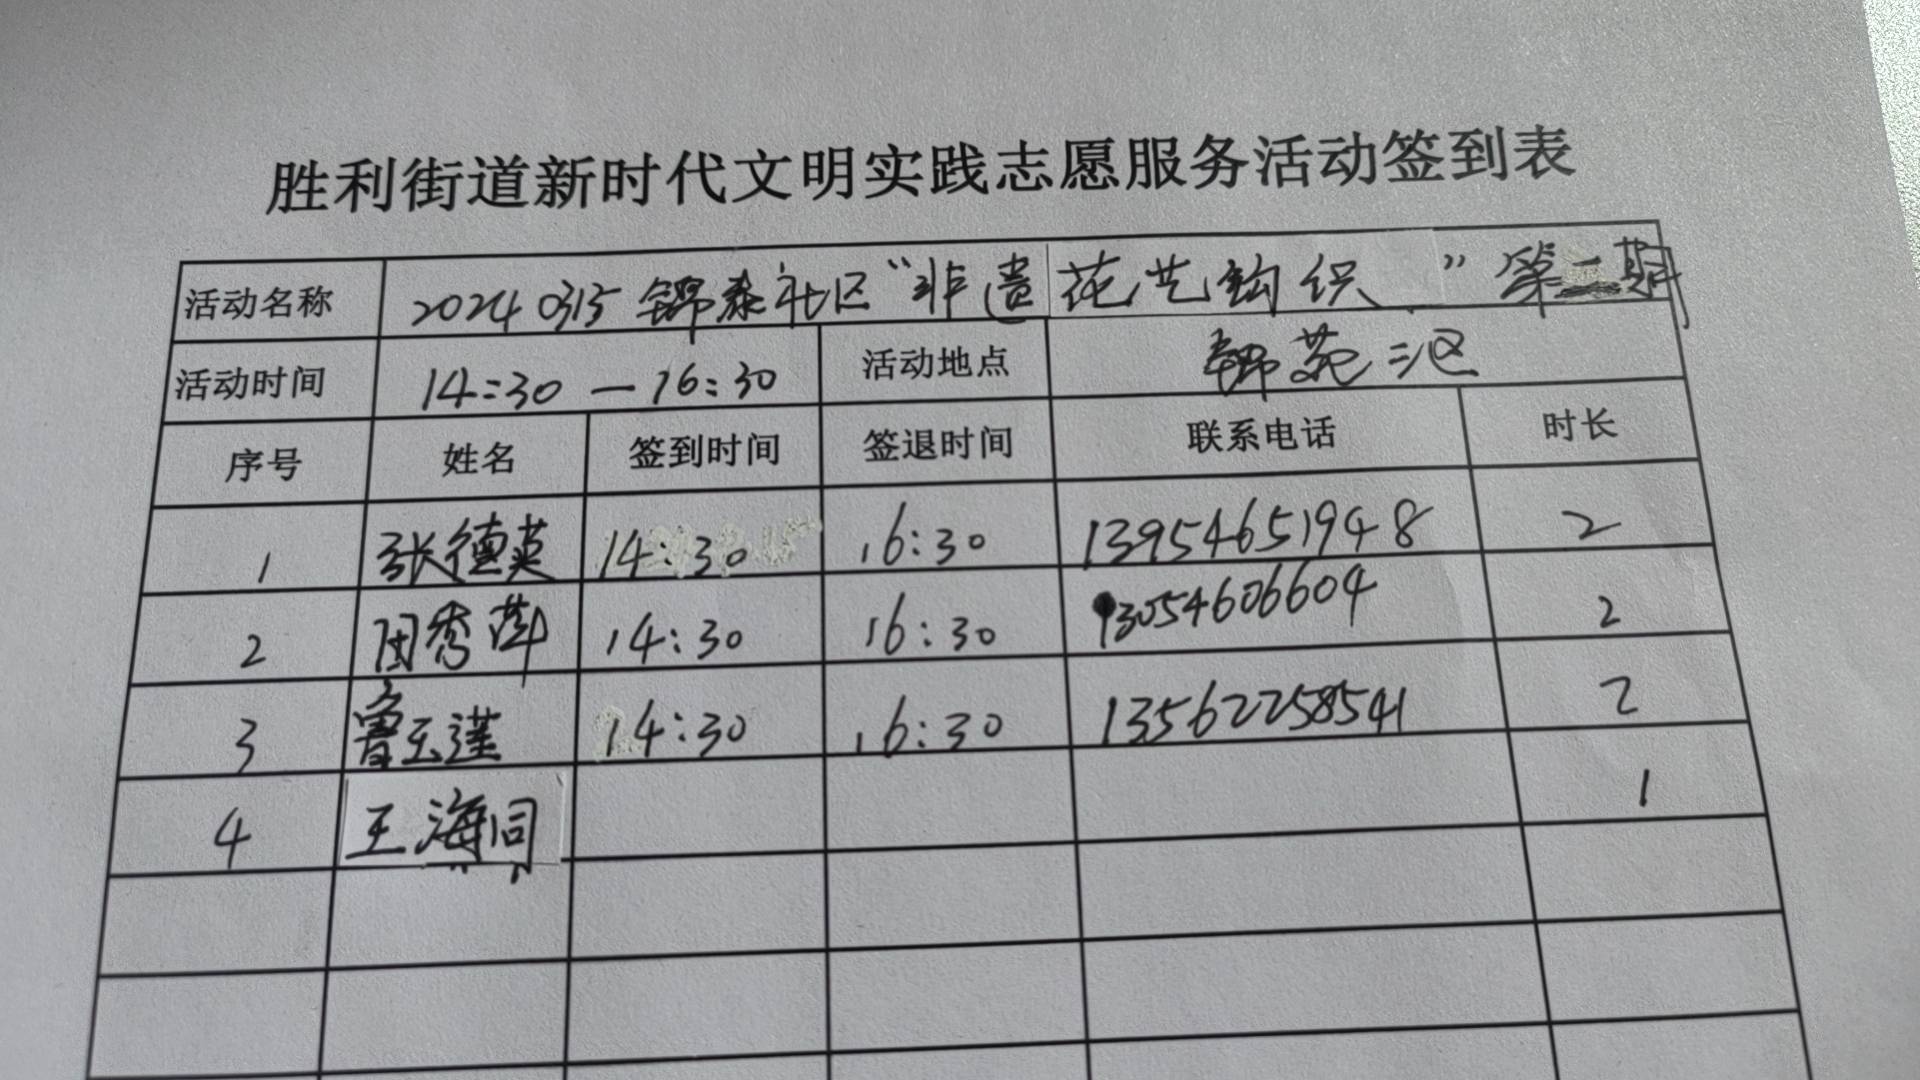 胜利街道新时代文明实践志愿服务活动签到表
活动名称 20240315 锦泰社区“非遗花艺钩织”第二期
活动时间 14:30 — 16:30 活动地点 锦苑二区
序号 姓名 签到时间 签退时间 联系电话 时长
1 张德英 14:30 16:30 13954651948 2
2 秀 14:30 16:30 13054606604 2
3 鲁玉谨 14:30 16:30 13562258541 2
4 王海同 1